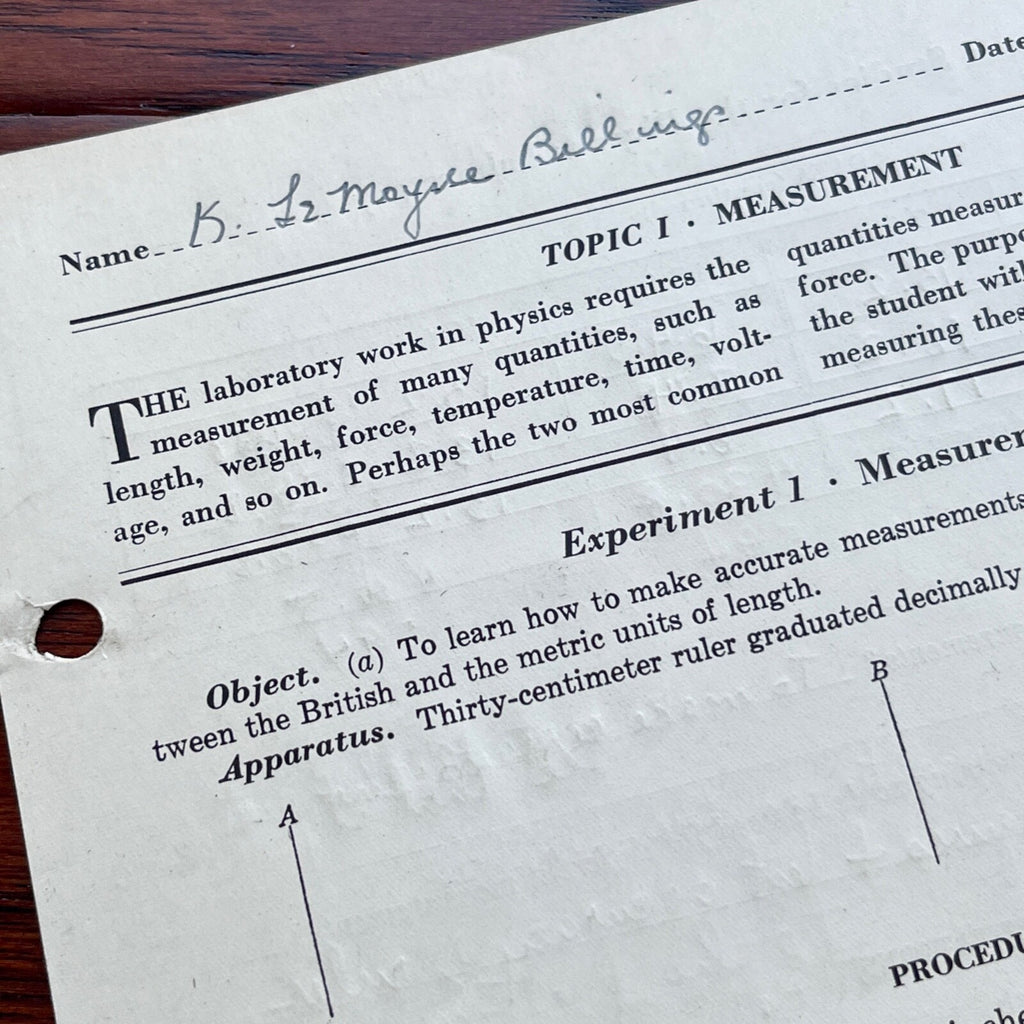 Date
Name K. Billings
TOPIC I · MEASUREMENT
THE laboratory work in physics requires the
measurement of many quantities, such as
length, weight, force, temperature, time, volt-
age, and so on. Perhaps the two most common
quantities measur
force. The purpo
the student with
measuring thes
Experiment 1 · Measurem
Object. (a) To learn how to make accurate measurements
tween the British and the metric units of length.
Apparatus. Thirty-centimeter ruler graduated decimally
A
B
PROCEDU